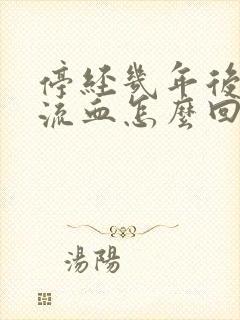 停經幾年後
流血怎麼回
湯陽